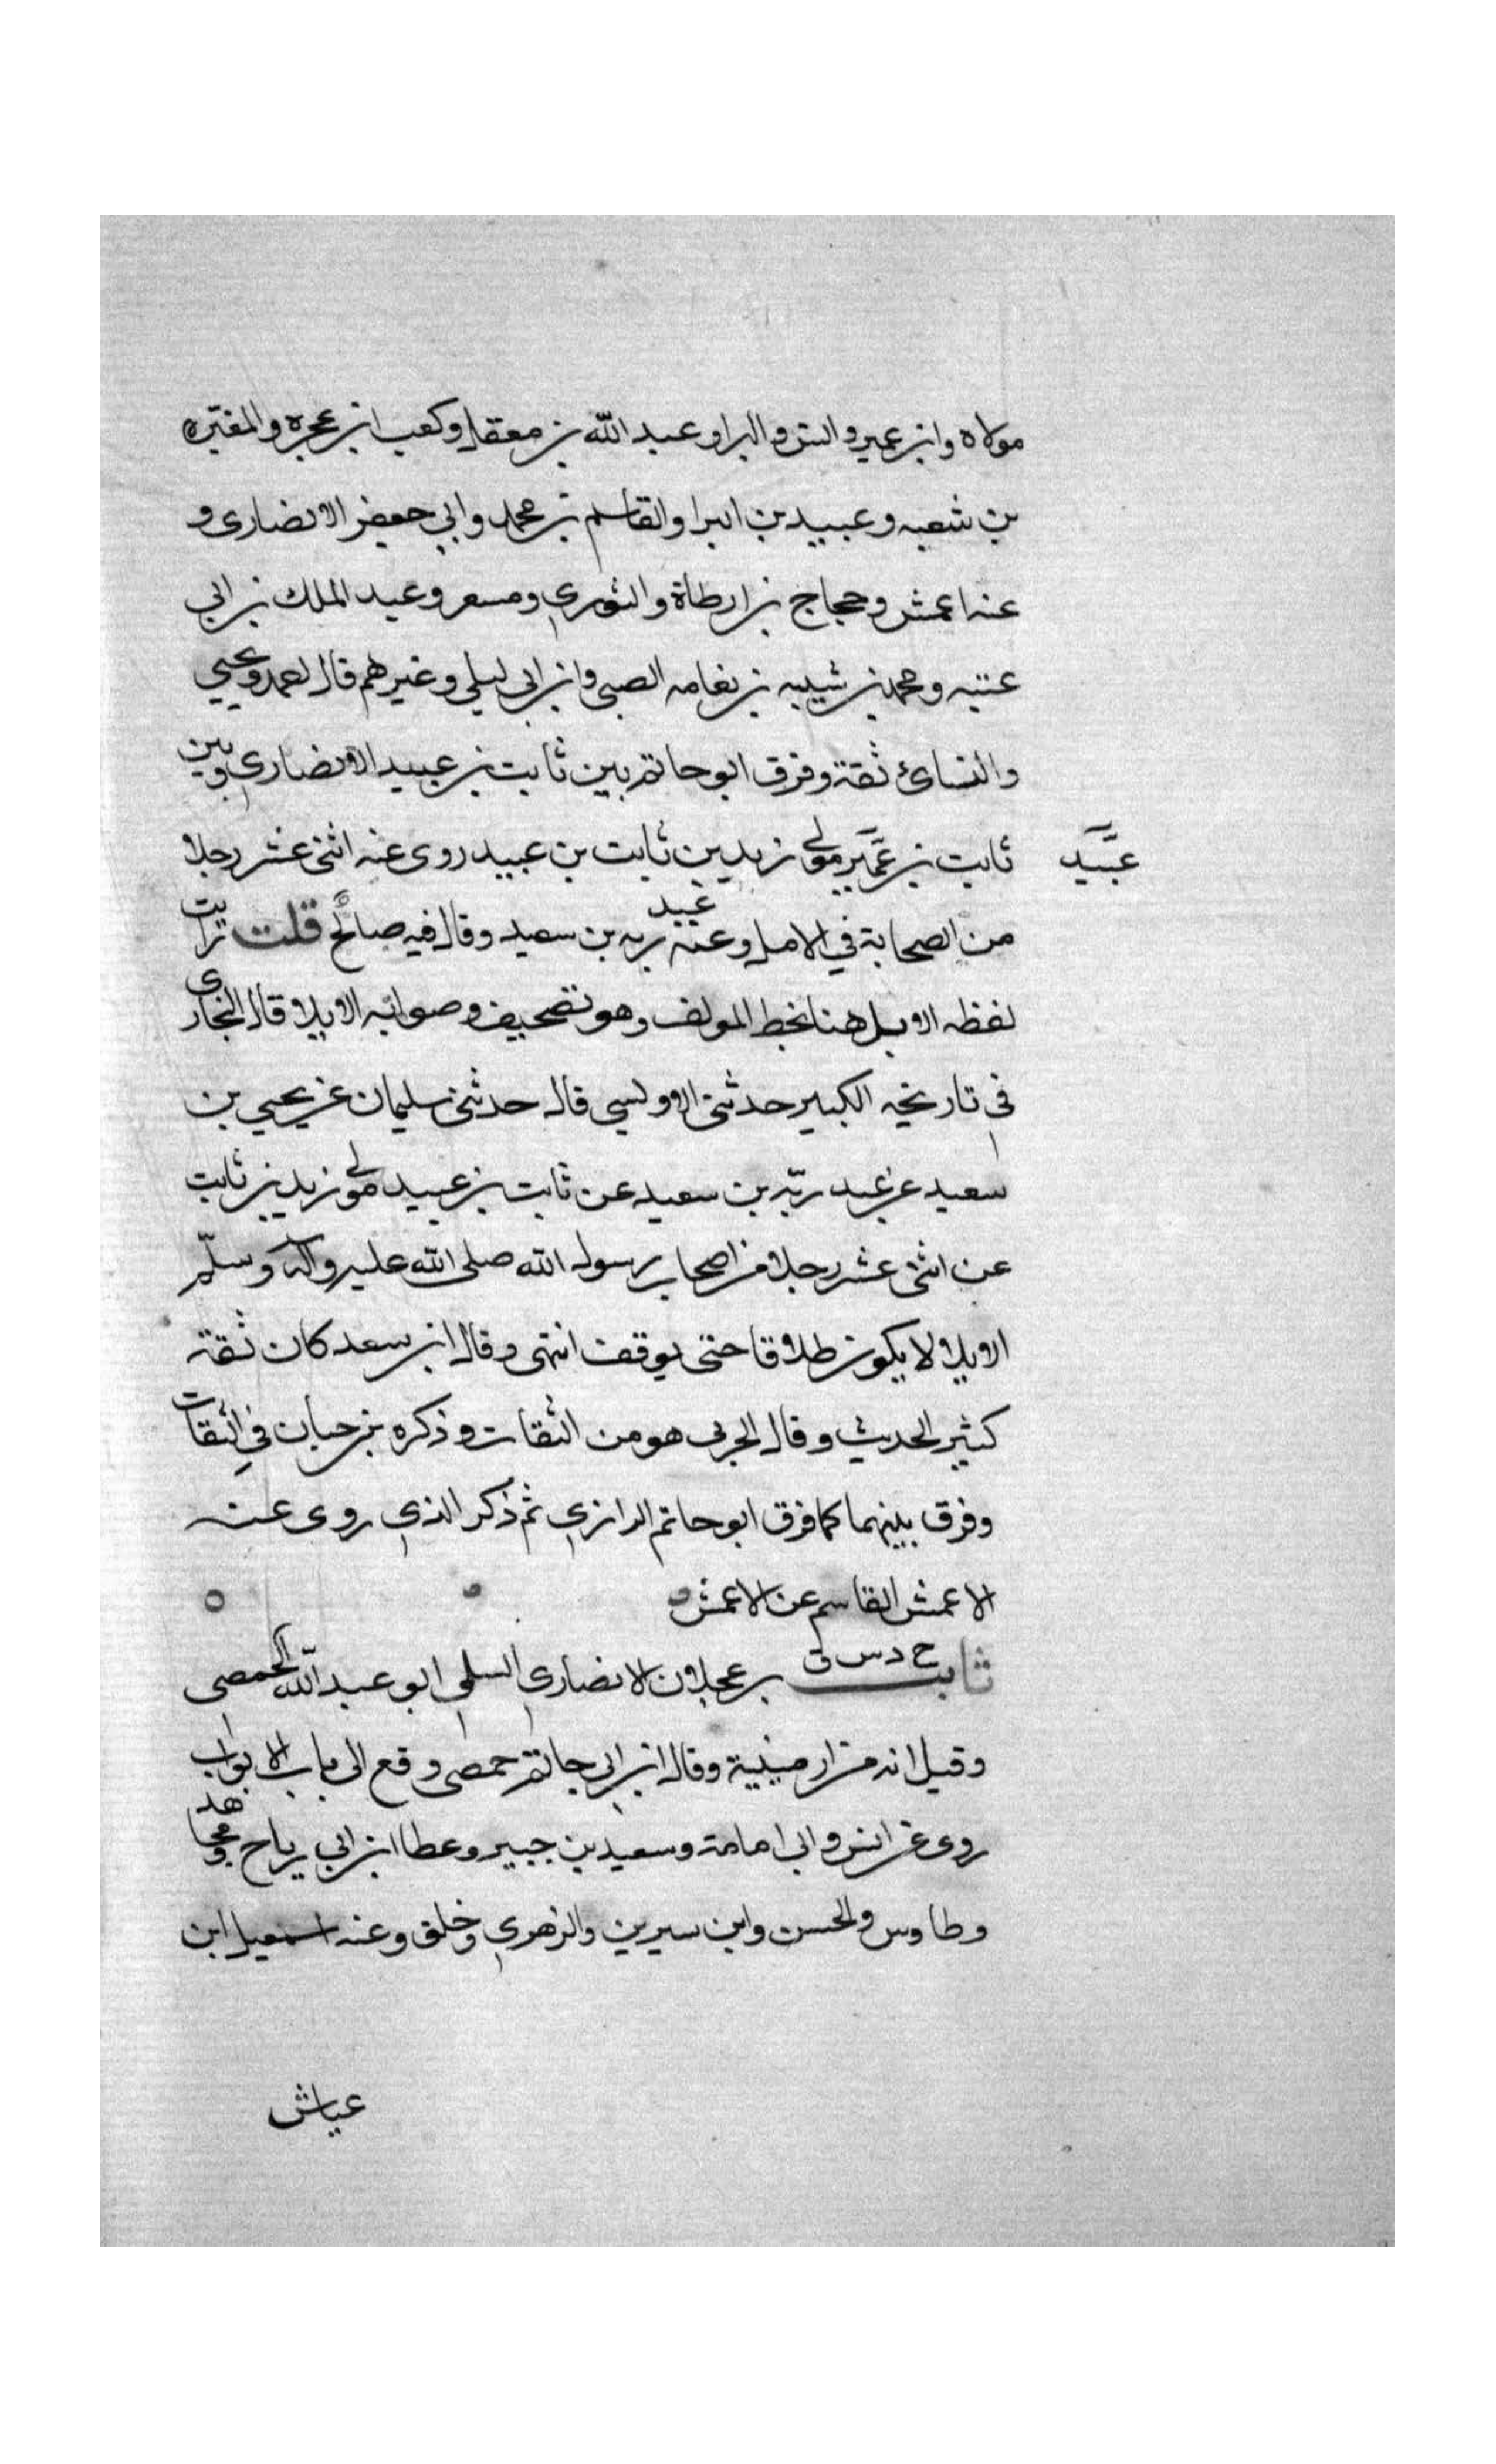 مولاه وابن عمير وانس والبرا وعبد الله بن معقل وكعب ابن عجره والمغيره
بن شعبه وعبيد بن البرا والقاسم بن محمد وابي جعفر الانصارى و
عنه اعمش وحجاج بن ارطاة والثوري ومسعر وعبد الملك بن ابي
عتبه ومحمد بن شيبه بن نعامه الضبي وابن ابى ليلى وغيرهم قال احمد ويحيي
والنسائ ثقة وفرق ابو حاتم بين ثابت بن عبيد الانصاري وبين
ثابت بن عمير مولى زيد بن ثابت بن عبيد روى عنه اثنى عشر رجلا
عبيد
من الصحابة في الامل وعنه عبيد ربه بن سعيد وقال فيه صالح قلت ترايت
لفظه الابل هنا بخط المولف وهو تصحيف وصوابه الايلا قال البخارى
فى تاريخه الكبير حدثنى الاوليسي قال حدثنى سليمان عن يحيي بن
سعيد عن عبد ربه بن سعيد عن ثابت بن عبيد مولى زيد بن ثابت
عن اثنى عشر رجلا من اصحاب رسول الله صلى الله عليه وآله وسلم
الايلا لا يكون طلاقا حتى يوقف انتهى وقال ابن سعد كان ثقة
كثير الحديث وقال الحربى هو من الثقات وذكره بن حبان في الثقات
وفرق بينهما كما فرق ابو حاتم الرازي ثم ذكر الذي روى عنه
الاعمش القاسم عن الاعمش
ثابت خ د س ق بن عجلان الانصاري السلمي ابو عبد الله الحمصى
وقيل انه من ارمينية وقال ابن ابى حاتم حمصى وقع الى باب الابواب
روى عن انس وابى امامة وسعيد بن جبير وعطا ابن ابي رياح ومجاهد
وطاوس والحسن وابن سيرين والزهري وخلق وعنه اسمعيل ابن
عياش